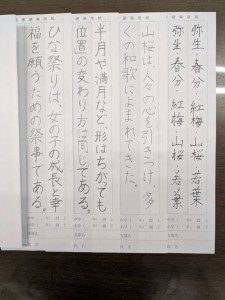 弥生 春分 紅梅 山桜 若葉
弥生 春分 紅梅 山桜 若葉
山桜は人々の心を引きつけ、多
くの和歌によまれてきた。
半月や満月など、形はちがっても
位置の変わり方は同じである。
ひな祭りは、女の子の成長と幸
福を願うための祭事である。